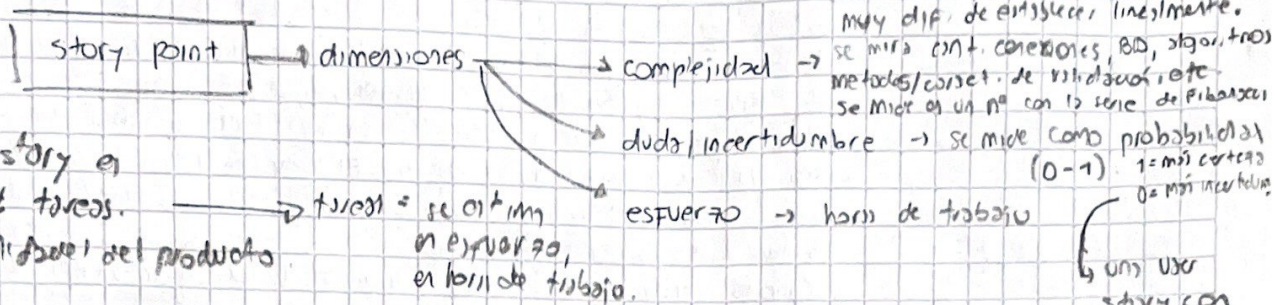 muy dif. de establecer linealmente.
story point → dimensiones → complejidad → se mira cant. conexiones, BD, algoritmos
metodos/caract. de validación, etc.
se mide en un nº con la serie de Fibonacci
duda/incertidumbre → se mide como probabilidad
(0-1). 1=más certeza
0=más incertidumbre
esfuerzo → horas de trabajo
story en
tareas. → tareas = se estiman
en esfuerzo,
en horas de trabajo.
del producto
una user
story con